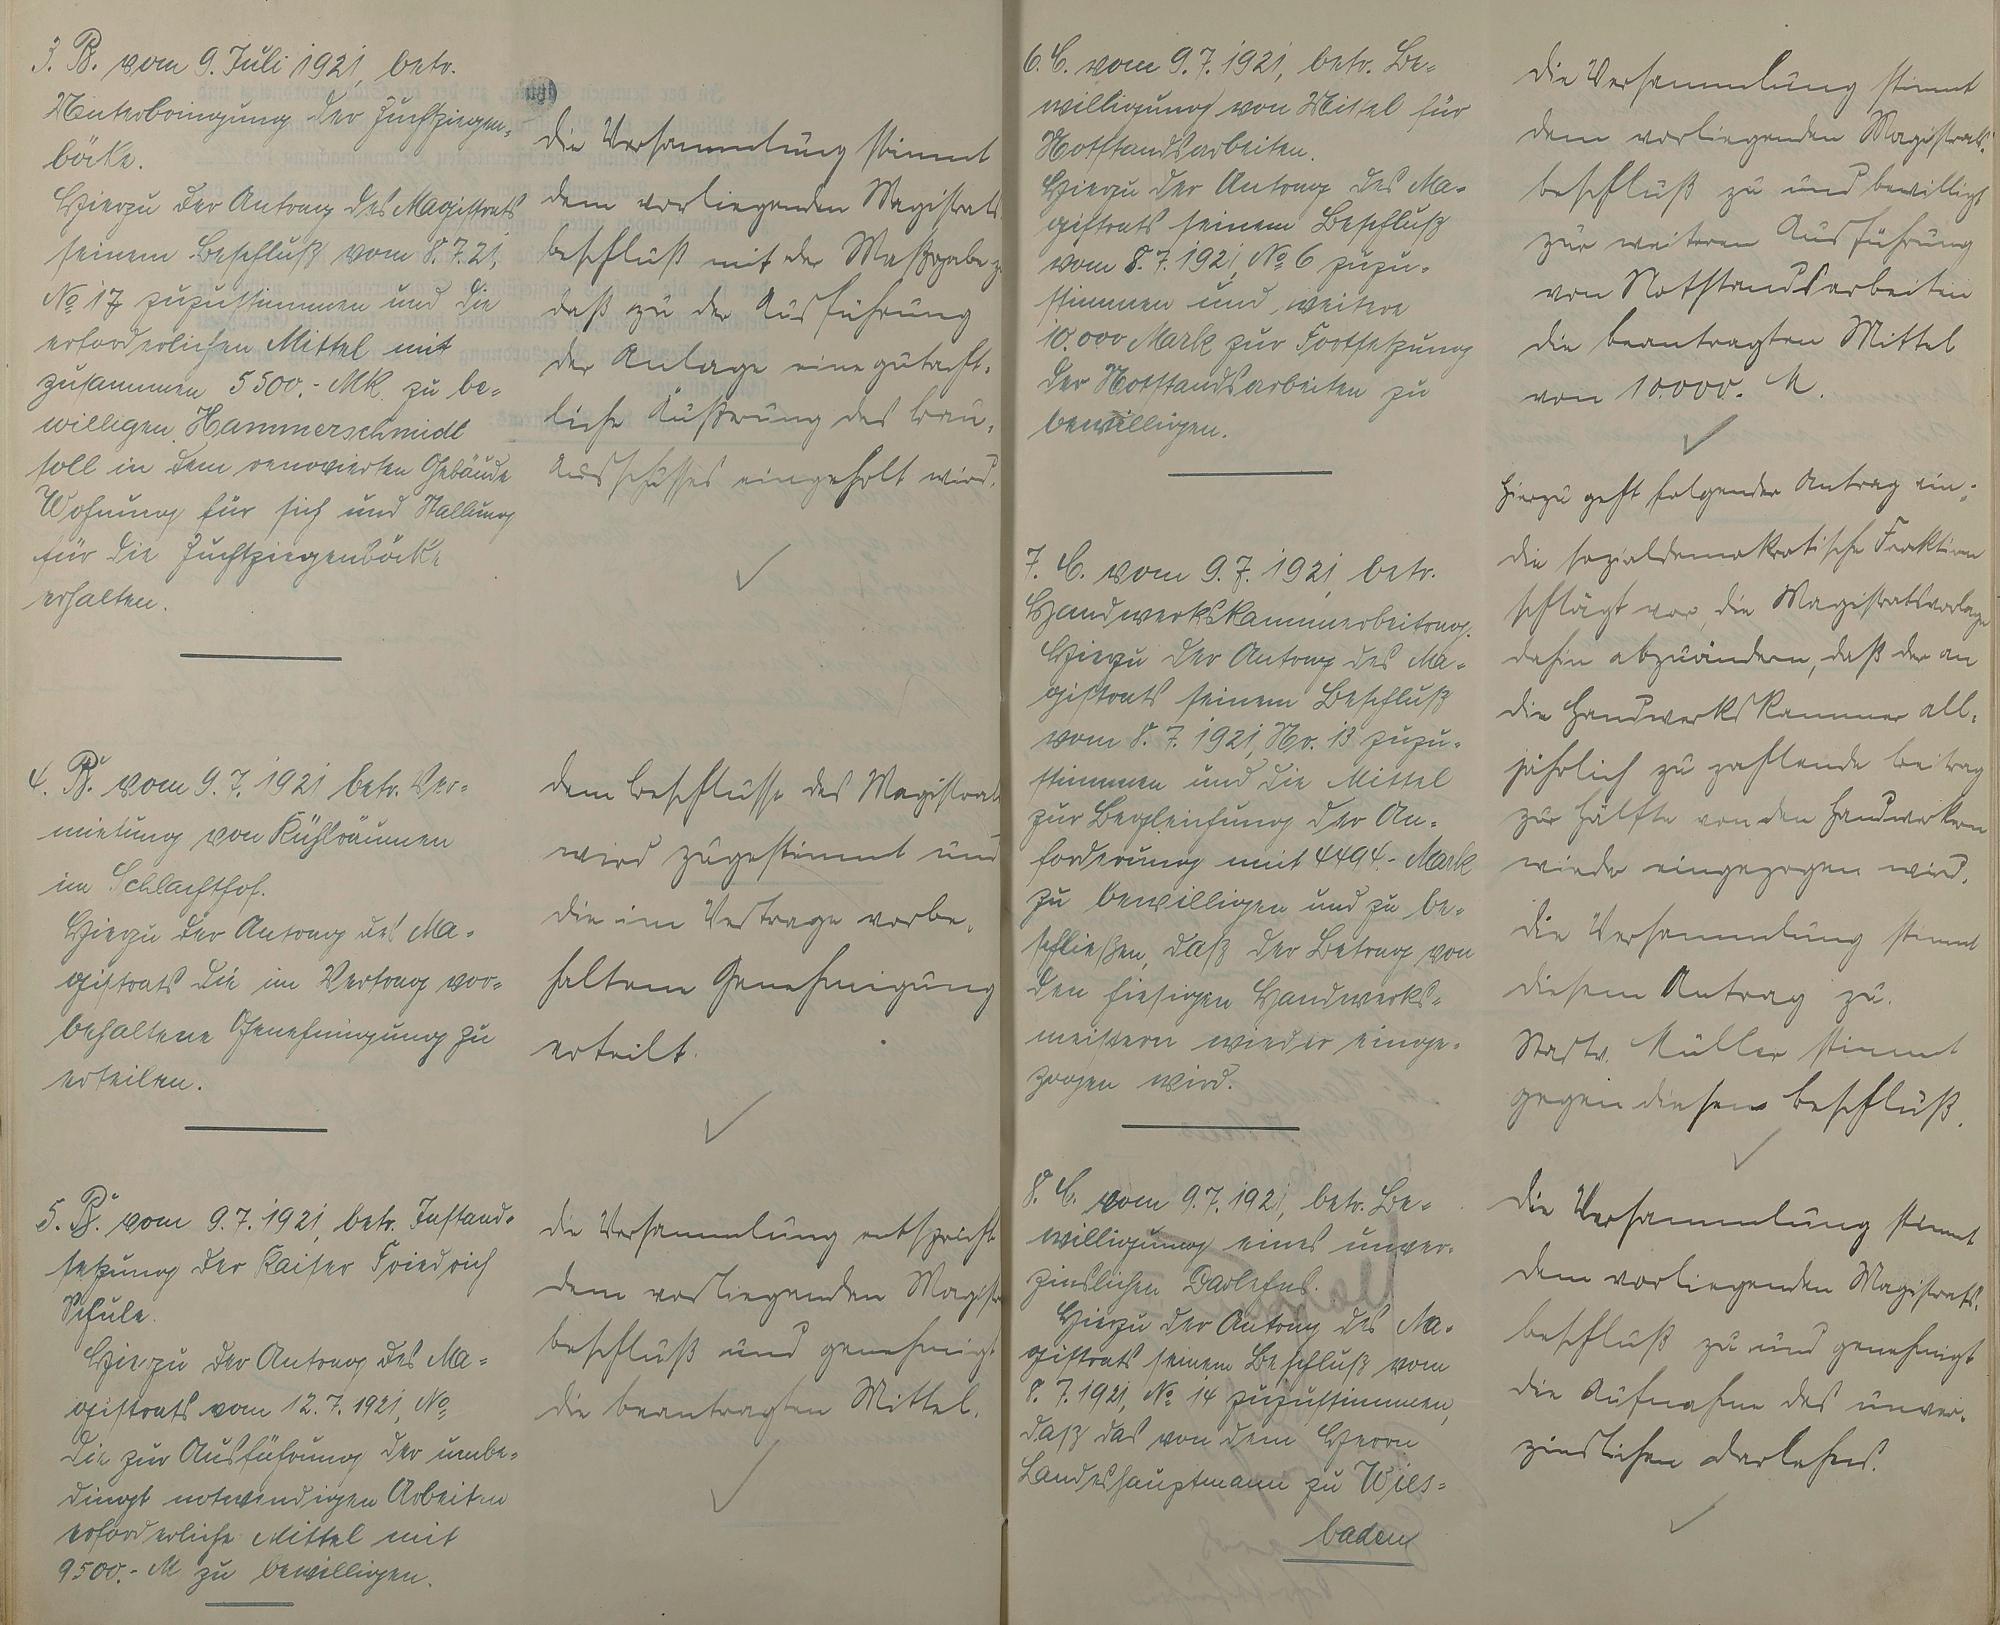 3. B. vom 9. Juli 1921, betr.
Unterbringung der Zuchtziegen-
böcke.
Hierzu der Antrag des Magistrats
seinem Beschluß vom 8.7.21,
No 17 zuzustimmen und die
erforderlichen Mittel mit
zusammen 5500.- Mk. zu be-
willigen. Hammerschmidt
soll in dem renovierten Gebäude
Wohnung für sich und Stallung
für die Zuchtziegenböcke
erhalten.
Die Versammlung stimmt
dem vorliegenden Magistrats
beschluß mit der Maßgabe zu
daß zu der Ausführung
der Anlage eine gutacht-
liche Äußerung des Bau-
ausschusses eingeholt wird.
4. B. vom 9.7.1921 betr. Ver-
mietung von Kühlräumen
im Schlachthof.
Hierzu der Antrag des Ma-
gistrats die im Vertrag vor-
behaltene Genehmigung zu
erteilen.
Dem Beschlusse des Magistrats
wird zugestimmt und
die im Vertrage vorbe-
haltene Genehmigung
erteilt.
5. B. vom 9.7.1921, betr. Instand-
setzung der Kaiser Friedrich
Schule.
Hierzu der Antrag des Ma-
gistrats vom 12.7.1921, No
die zur Ausführung der unbe-
dingt notwendigen Arbeiten
erforderliche Mittel mit
9500.- M zu bewilligen.
Die Versammlung entspricht
dem vorliegenden Magistra
beschluß und genehmigt
die beantragten Mittel.
6. C. vom 9.7.1921, betr. Be-
willigung von Mittel für
Notstandsarbeiten.
Hierzu der Antrag des Ma-
gistrats seinem Beschluß
vom 8.7.1921, No 6 zuzu-
stimmen und weitere
10.000 Mark zur Fortsetzung
der Notstandsarbeiten zu
bewilligen.
Die Versammlung stimmt
dem vorliegenden Magistrats-
beschluß zu und bewilligt
zur weiteren Ausführung
von Notstandsarbeiten
die beantragten Mittel
von 10.000.- M.
7. C. vom 9.7.1921, betr.
Handwerkskammerbeitrag.
Hierzu der Antrag des Ma-
gistrats seinem Beschluß
vom 8.7.1921, No. 13 zuzu-
stimmen und die Mittel
zur Begleichung der An-
forderung mit 4494.- Mark
zu bewilligen und zu be-
schließen, daß der Betrag von
den hiesigen Handwerks-
meistern wieder einge-
zogen wird.
Hierzu geht folgender Antrag ein:
Die sozialdemokratische Fraktion
schlägt vor, die Magistratsvorlage
dahin abzuändern, daß der an
die Handwerkskammer all-
jährlich zu zahlende Beitrag
zur Hälfte von den Handwerkern
wieder eingezogen wird.
Die Versammlung stimmt
diesem Antrag zu.
Stadtv. Müller stimmt
gegen diesen Beschluß.
8. C. vom 9.7.1921, betr. Be-
willigung eines unver-
zinslichen Darlehns.
Hierzu der Antrag des Ma-
gistrats seinem Beschluß vom
8.7.1921, No 14 zuzustimmen,
daß das von dem Herrn
Landeshauptmann zu Wies-
baden
Die Versammlung stimmt
dem vorliegenden Magistrats-
beschluß zu und genehmigt
die Aufnahme des unver-
zinslichen Darlehns.